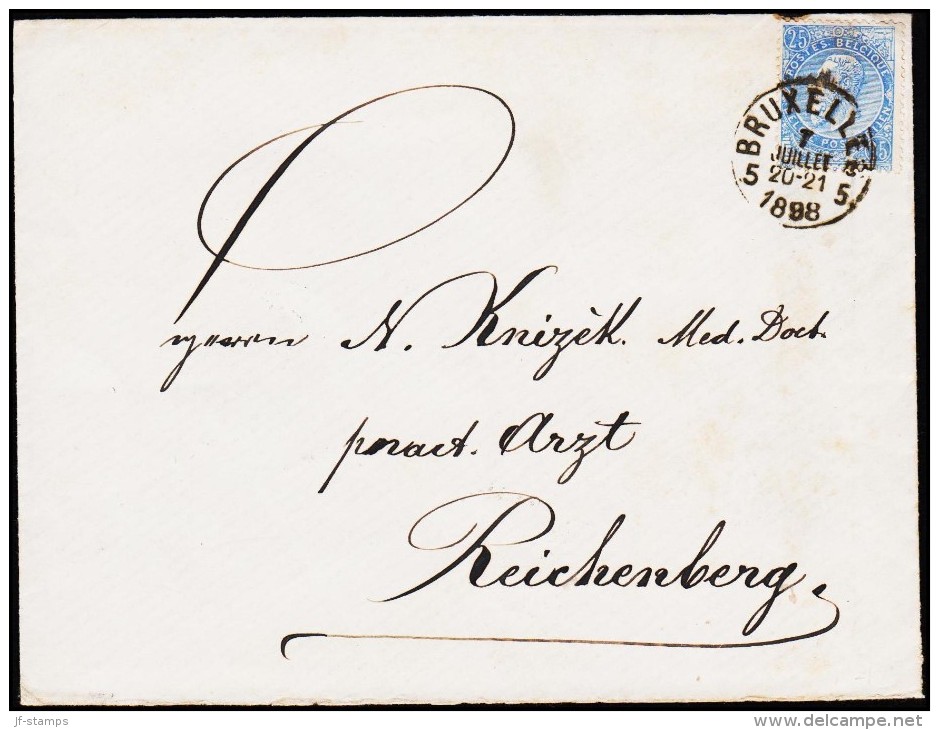 25
POSTES BELGIQUE
BRUXELLES
1
JUILLET
5 20-21 5
1898
Herrn N. Knizèk. Med. Doct.
pract. Arzt
Reichenberg.
jf-stamps
www.delcampe.net